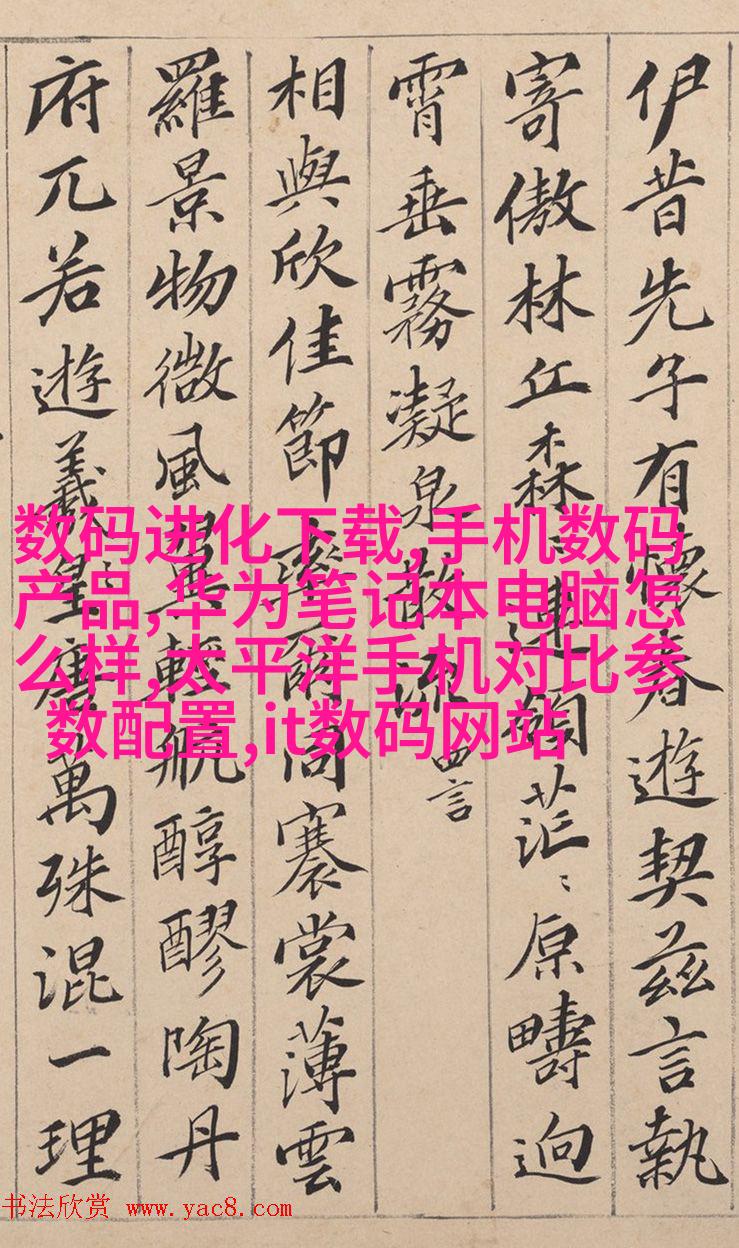 伊昔先子有懷春遊契茲言執
寄傲林丘森〻連領茫〻原疇迥
霄垂霧凝泉散流 四言
相與欣佳節率爾同褰裳薄雲
羅景物微風翼輕航醇醪陶丹
府兀若遊羲皇唐萬殊混一理
数码进化下载,手机数码
产品,华为笔记本电脑怎
么样,太平洋手机对比参
数配置,it数码网站
书法欣赏 www.yac8.com